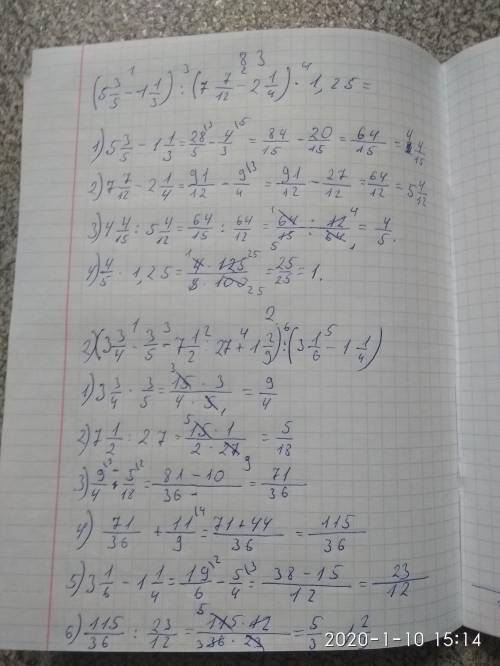 83
(5 3/5 - 1 1/3) : (7 7/12 - 2 1/4) · 1,25 =
1) 5 3/5 - 1 1/3 = 28/5 - 4/3 = 84/15 - 20/15 = 64/15 = 4 4/15
2) 7 7/12 - 2 1/4 = 91/12 - 9/4 = 91/12 - 27/12 = 64/12 = 5 4/12
3) 4 4/15 : 5 4/12 = 64/15 : 64/12 = 64 · 12 / 15 · 64 = 4/5.
4) 4/5 · 1,25 = 4 · 125 / 5 · 100 = 25/25 = 1.
2.
2) (3 3/4 · 3/5 - 7 1/2 : 27 + 1 2/9) : (3 1/6 - 1 1/4)
1) 3 3/4 · 3/5 = 15 · 3 / 4 · 5 = 9/4
2) 7 1/2 : 27 = 15 · 1 / 2 · 27 = 5/18
3) 9/4 - 5/18 = 81 - 10 / 36 = 71/36
4) 71/36 + 11/9 = 71 + 44 / 36 = 115/36
5) 3 1/6 - 1 1/4 = 19/6 - 5/4 = 38 - 15 / 12 = 23/12
6) 115/36 : 23/12 = 115 · 12 / 36 · 23 = 5/3
2020-1-10 15:14